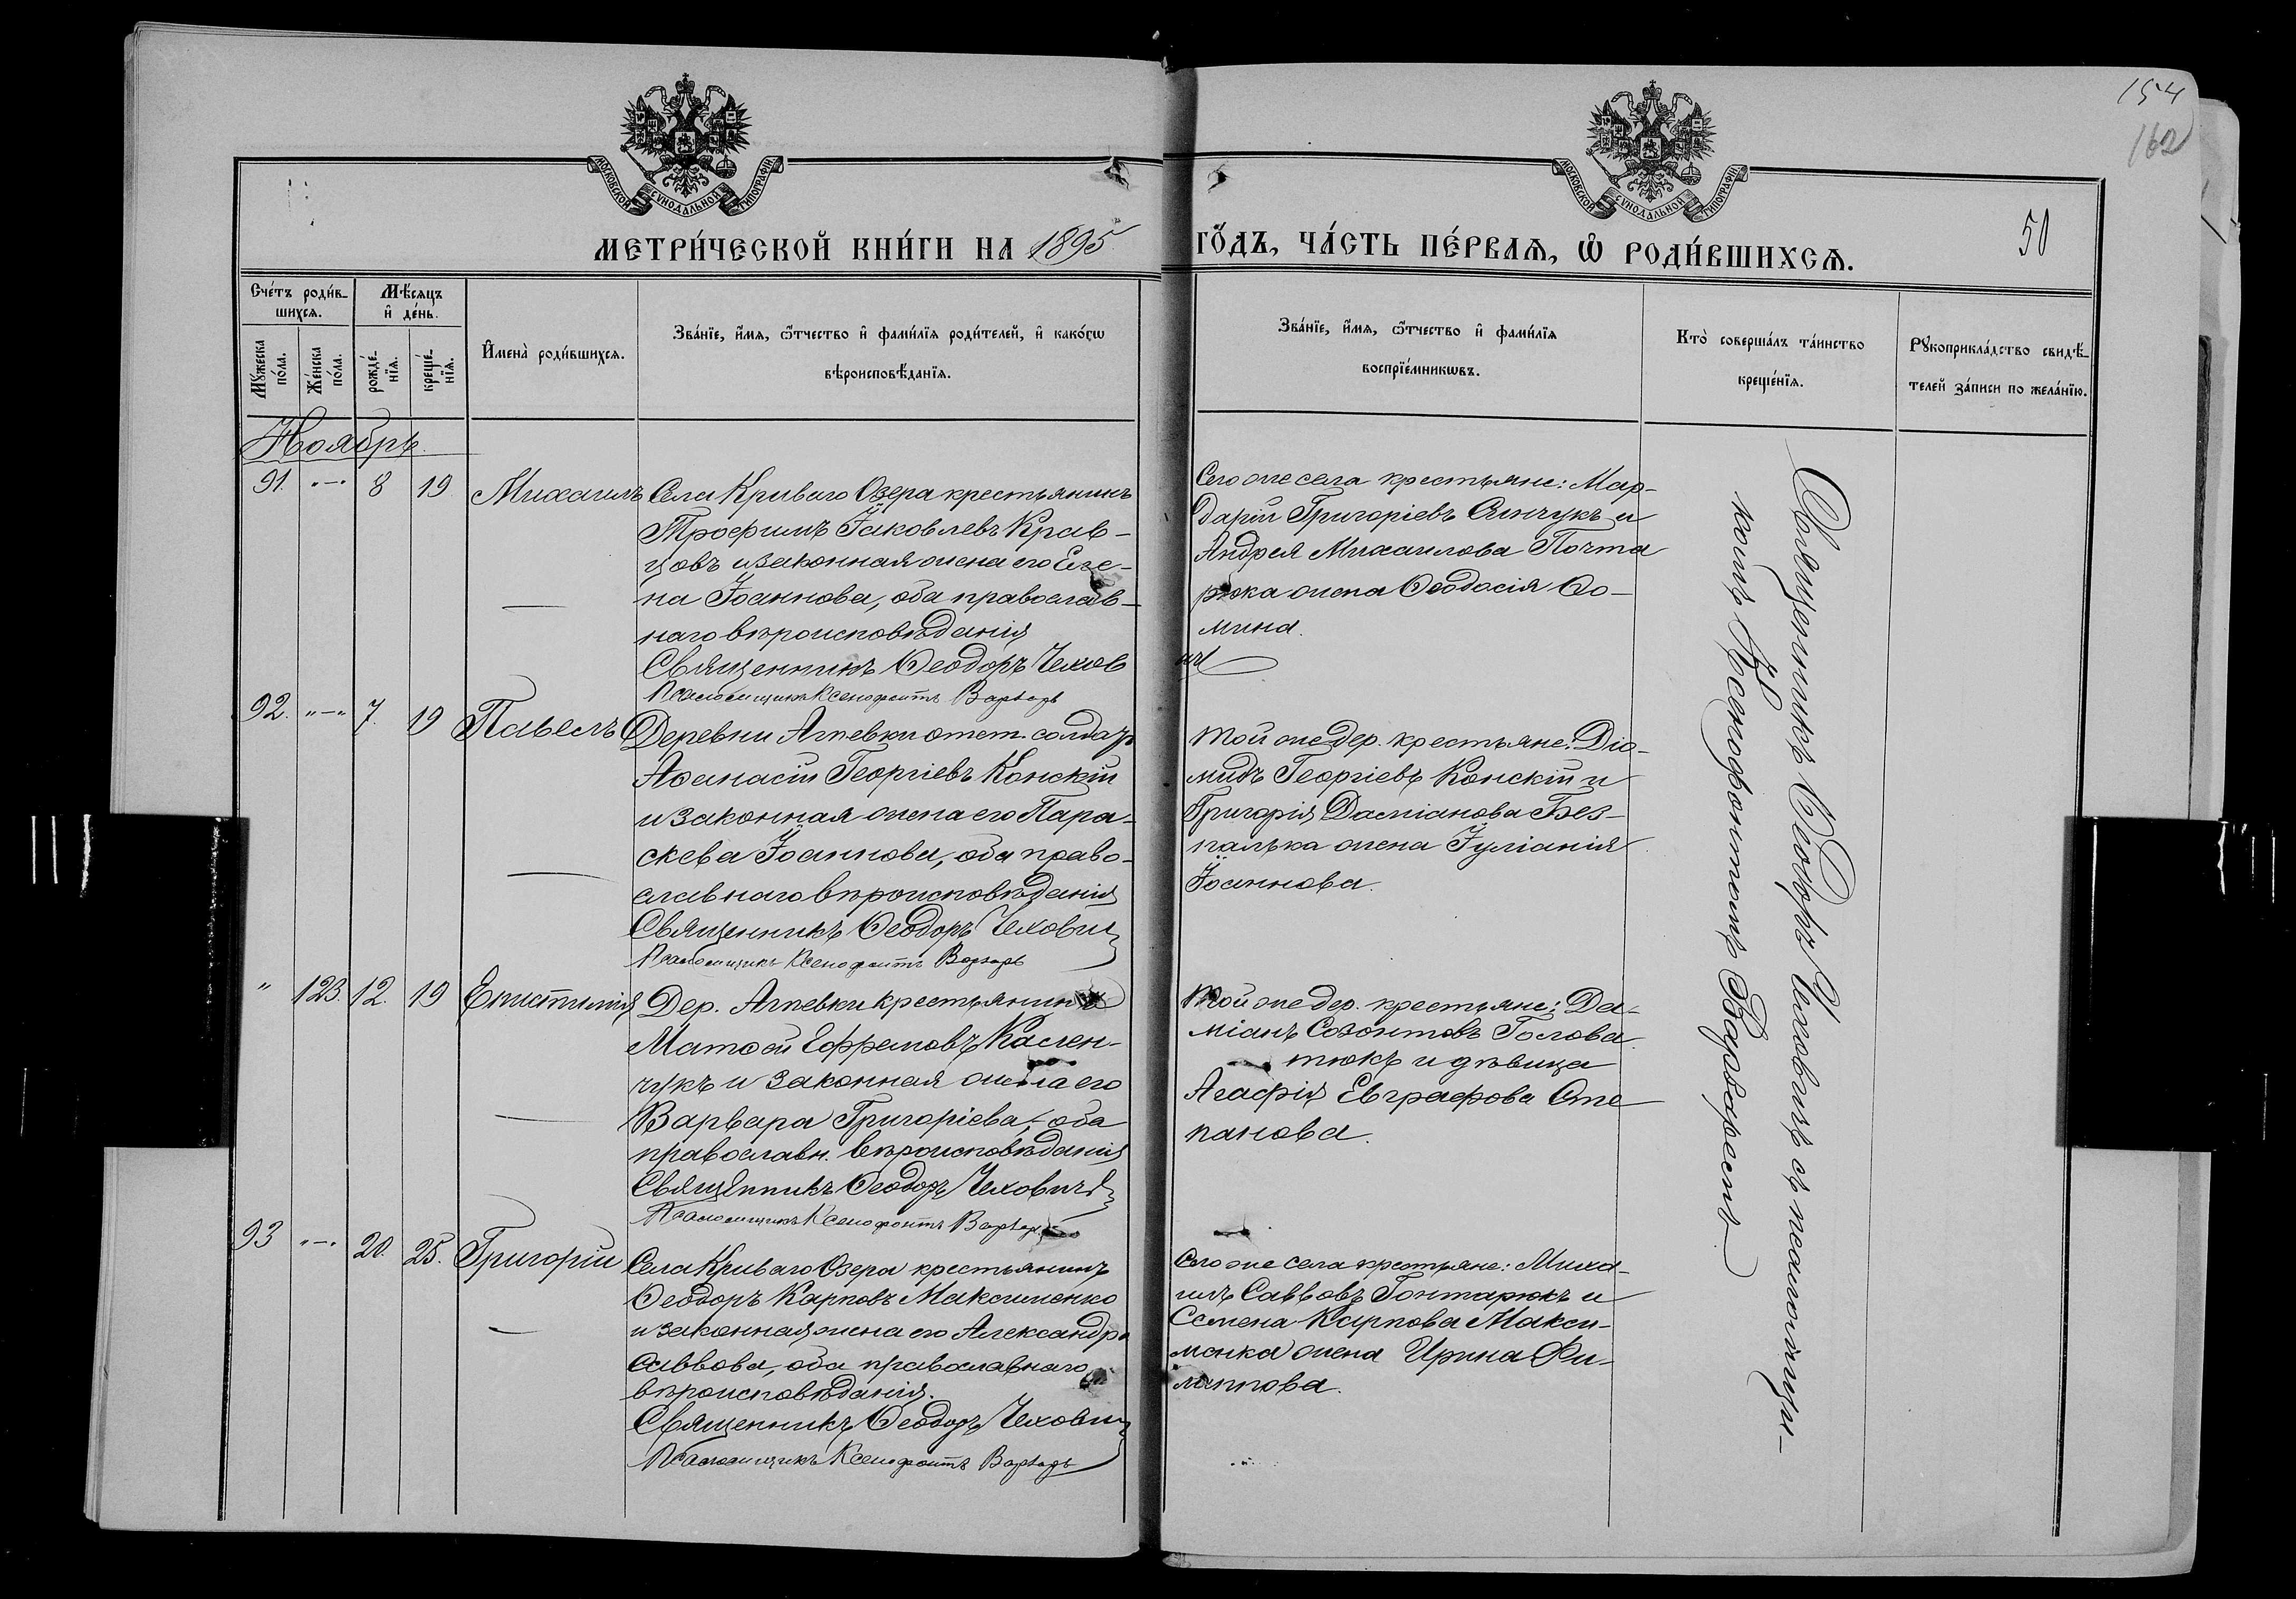 154
162
МОСКОВСКОЙ СѴНОДАЛЬНОЙ ТИПОГРАФІИ
МОСКОВСКОЙ СѴНОДАЛЬНОЙ ТИПОГРАФІИ
МЕТРИ́ЧЕСКОЙ КНИ́ГИ НА 1895 ГО́ДЪ, ЧА́СТЬ ПЕ́РВАѦ, Ѡ РОДИ́ВШИХСѦ.
50
Сче́тъ роди́в-
шихсѧ.
Мѣ́сѧцъ
и҆ де́нь.
Мꙋ́жеска
по́ла.
Же́нска
по́ла.
рожде́-
нїѧ.
креще́-
нїѧ.
И҆мена̀ роди́вшихсѧ.
Зва́нїе, и҆́мѧ, ѻ҆́тчество и҆ фами́лїѧ роди́телей, и҆ како́гѡ
вѣроисповѣ́данїѧ.
Зва́нїе, и҆́мѧ, ѻ҆́тчество и҆ фами́лїѧ
воспрїе́мникѡвъ.
Кто̀ соверша́лъ та́инство
креще́нїѧ.
Рꙋкоприкла́дство свидѣ́-
телей за́писи по жела́нїю.
Ноябрь.
91. "—" 8 19 Михаилъ
Села Криваго Озера крестьянинъ
Трофимъ Іаковлевъ Крав-
цовъ и законная жена его Еле-
на Іоаннова, оба православ-
наго вѣроисповѣданія
Священникъ Ѳеодоръ Чехов
ичъ
Псаломщикъ Ксенофонтъ Варварь
Сего же села крестьяне: Мар-
дарій Григоріевъ Синчукъ и
Андрея Михаилова Почта
рюка жена Ѳеодосія Ѳо-
мина.
92. "—" 7. 19 Павелъ
Деревни Агневки отст. солдатъ
Аѳанасій Георгіевъ Конскій
и законная жена его Пара-
скева Іоаннова, оба право-
славнаго вѣроисповѣданія
Священникъ Ѳеодоръ Чехович
Псаломщикъ Ксенофонтъ Варварь
Той же дер. крестьяне: Діо-
мидъ Георгіевъ Конскій и
Григорія Даміанова Без-
палька жена Іуліанія
Іоаннова.
" 123. 12. 19 Епистимія
Дер. Агневки крестьянинъ
Матѳей Ефремовъ Каслен-
чукъ и законная жена его
Варвара Григоріева, оба
православн. вѣроисповѣданія
Священникъ Ѳеодоръ Чеховичъ
Псаломщикъ Ксенофонтъ Варварь
Той же дер. крестьяне: Да-
міанъ Созонтовъ Голова
тюкъ и дѣвица
Агафія Евграфова Сте
панова.
93 "—" 20. 25. Григорій
Села Криваго Озера крестьянинъ
Ѳеодоръ Карповъ Максименко
и законная жена его Александра
Саввова, оба православнаго
вѣроисповѣданія.
Священникъ Ѳеодоръ Чехович
Псаломщикъ Ксенофонтъ Варварь
Сего же села крестьяне: Миха-
илъ Саввовъ Гонтарюкъ и
Семена Карпова Макси-
менка жена Ирина Фи-
липпова.
Священникъ Ѳеодоръ Чеховичъ съ псаломщи-
комъ Ксенофонтомъ Варваремъ.